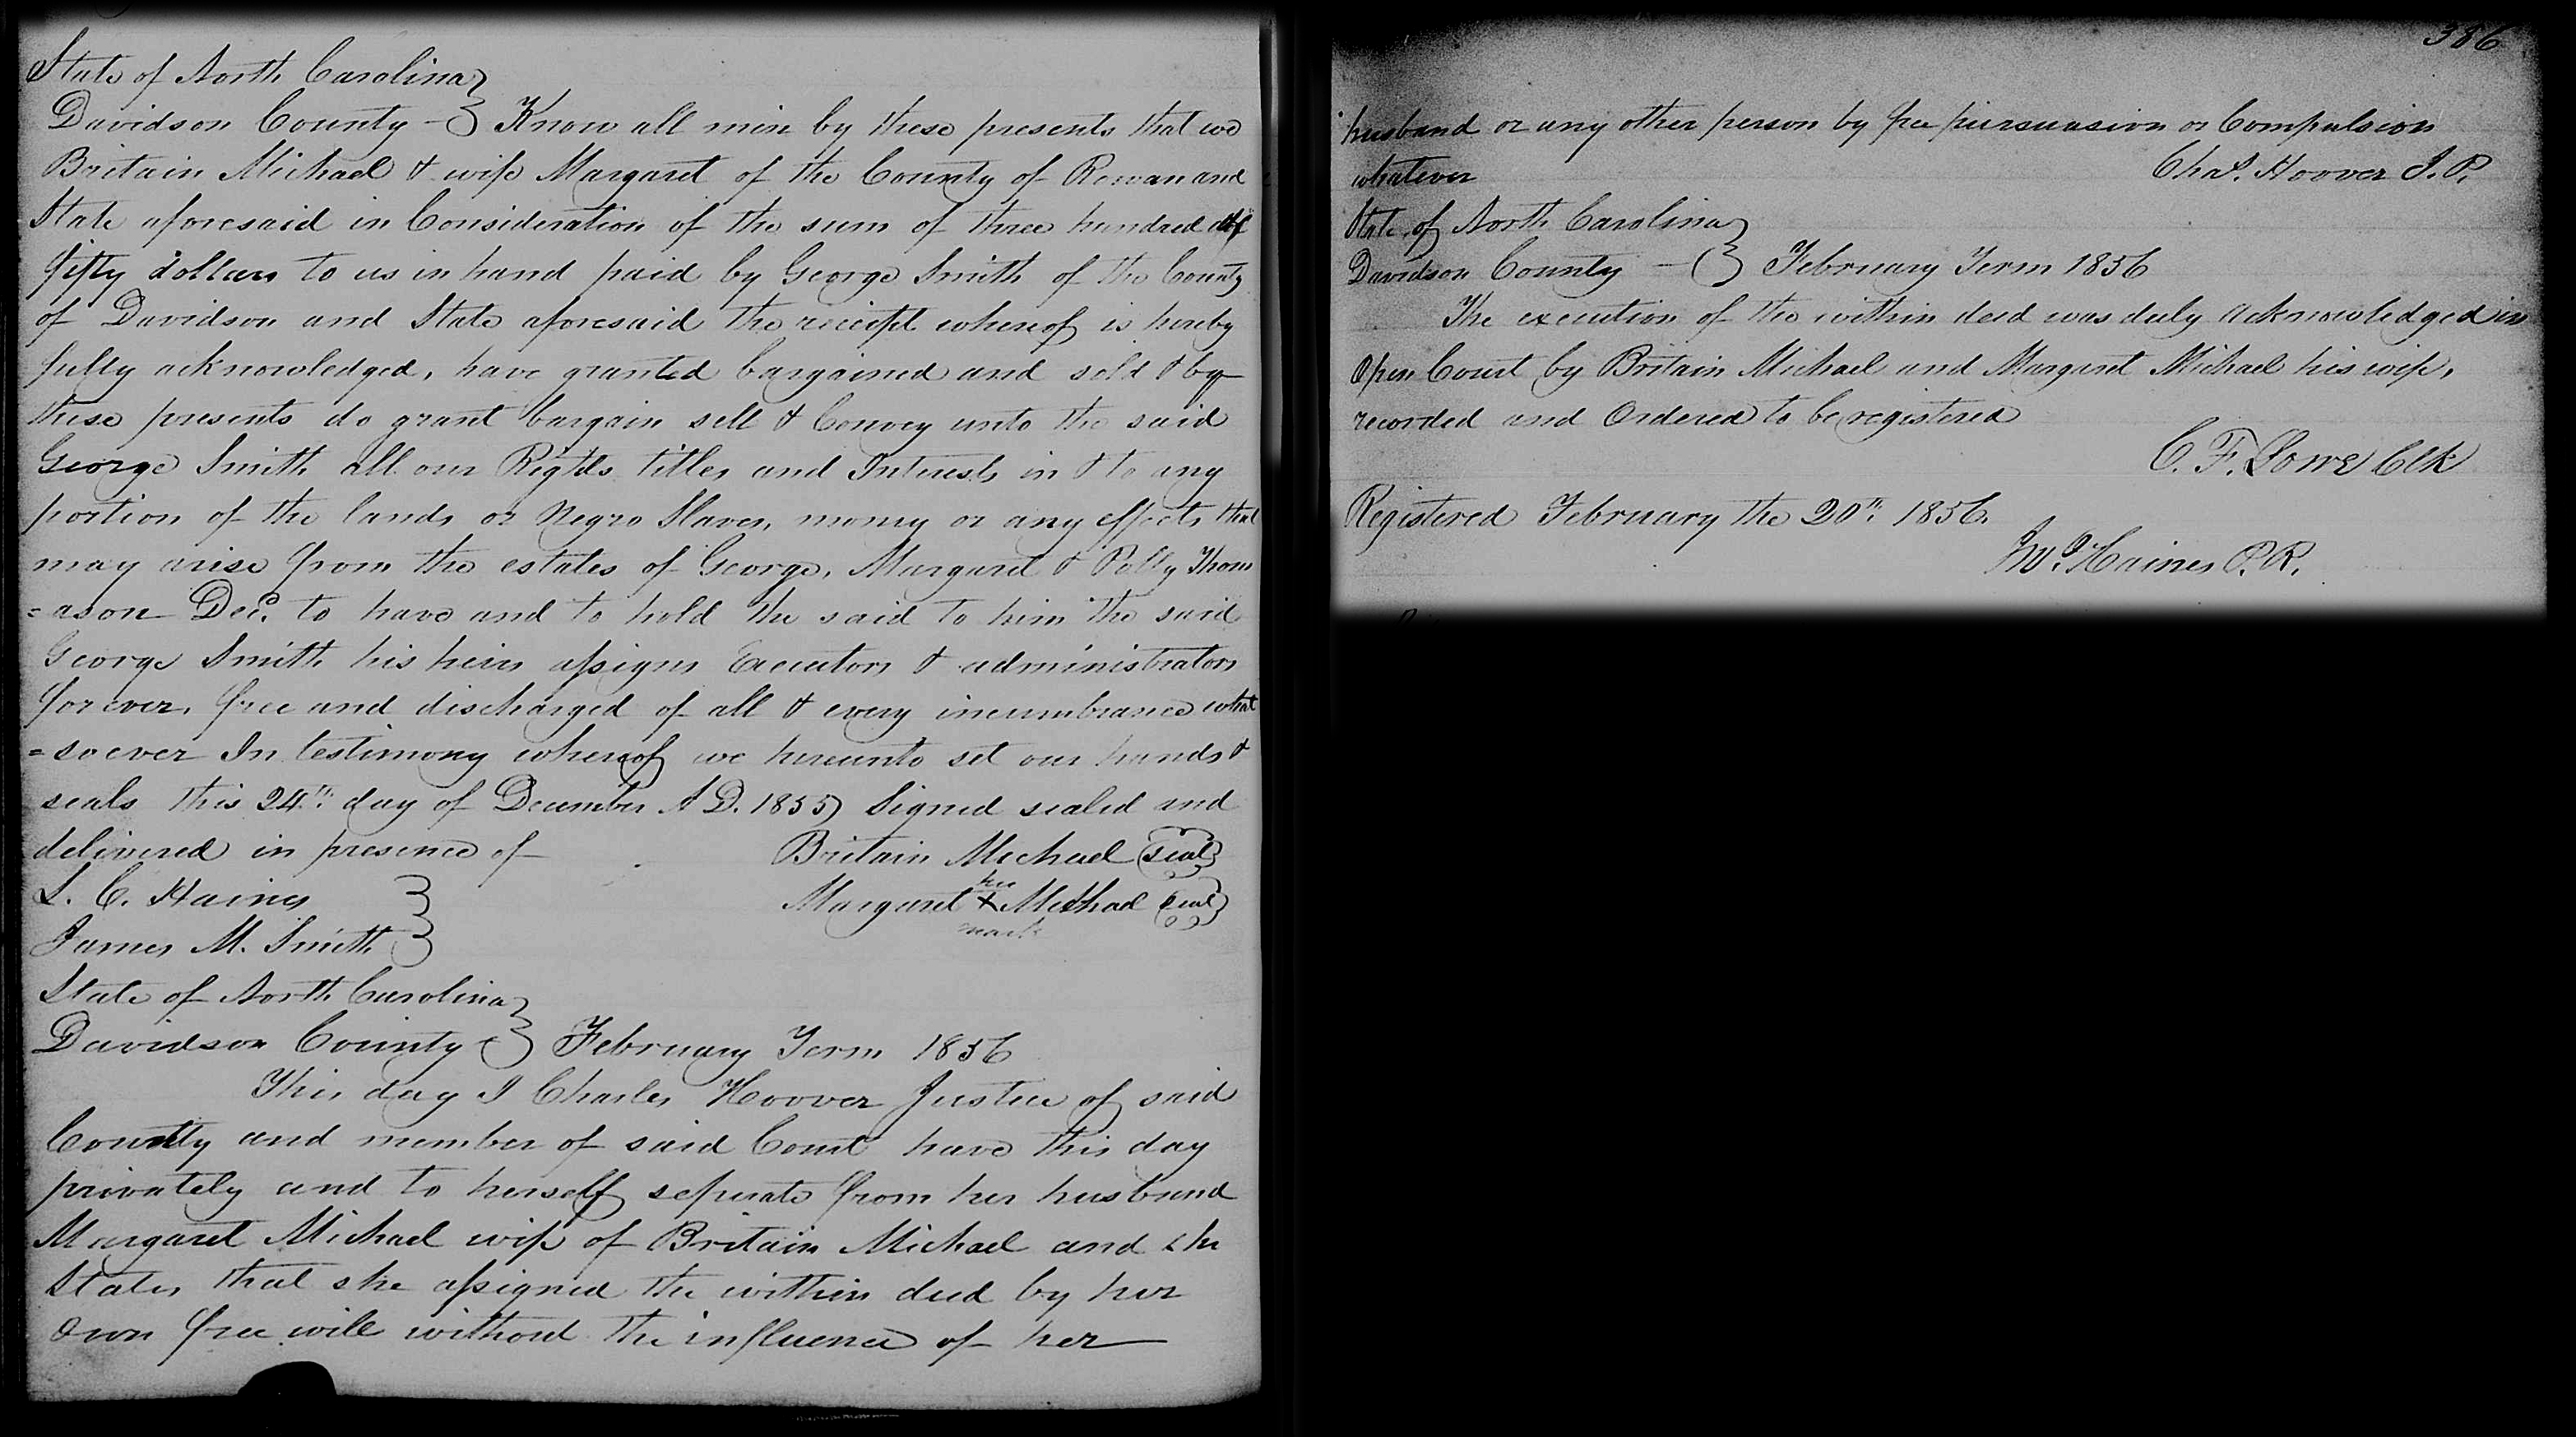 State of North Carolina }
Davidson County - } Know all men by these presents that we
Britain Michael & wife Margaret of the County of Rowan and
State aforesaid in Consideration of the sum of three hundred &
fifty dollars to us in hand paid by George Smith of the County
of Davidson and State aforesaid the receipt whereof is hereby
fully acknowledged, have granted bargained and sold & by
these presents do grant bargain sell & Convey unto the said
George Smith all our Rights titles and Interests in & to any
portion of the lands or Negro Slaves, money or any effects that
may arise from the estates of George, Margaret & Polly Thom
=ason Decd. to have and to hold the said to him the said
George Smith his heirs assigns Executors & administrators
forever, free and discharged of all & every incumbrance what
=soever In testimony whereof we hereunto set our hands &
seals this 24th day of December A D. 1855 Signed sealed and
delivered in presence of Britain Michael (seal)
L. C. Haines } Margaret her X mark Michael (seal)
James M. Smith }
State of North Carolina }
Davidson County } February Term 1856
This day I Charles Hoover Justice of said
County and member of said Court have this day
privately and to herself seperate from her husband
Margaret Michael wife of Britain Michael and she
States that she assigned the within deed by her
Own free will without the influence of her
386
husband or any other person by pursuasion or Compulsion
whatever Chas. Hoover J. P.
State of North Carolina }
Davidson County - } February Term 1856
The execution of the within deed was duly acknowledged in
Open Court by Britain Michael and Margaret Michael his wife,
recorded and Ordered to be registered
C. F. Lowe Clk
Registered February the 20th 1856.
Jno. Haines P. R.